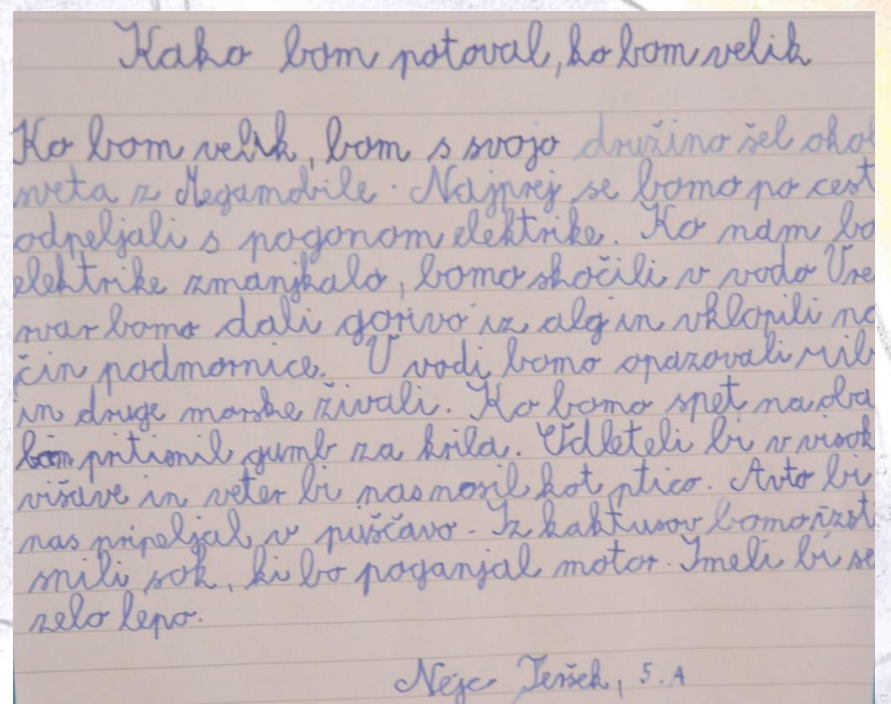 Kako bom potoval, ko bom velik
Ko bom velik, bom s svojo družino šel okol
sveta z Megamobile. Najprej se bomo po cest
odpeljali s pogonom elektrike. Ko nam bo
elektrike zmanjkalo, bomo skočili v vodo V re
rvar bomo dali gorivo iz alg in vklopili na
čin podmornice. V vodi bomo opazovali rib
in druge morske živali. Ko bomo spet na oba
bom pritisnil gumb za krila. Odleteli bi v visok
višave in veter bi nas nosil kot ptico. Avto bi
nas pripeljal v puščavo. Iz kaktusov bomo izst
snili sok, ki bo poganjal motor. Imeli bi se
zelo lepo.
Nejc Jeršek, 5. A